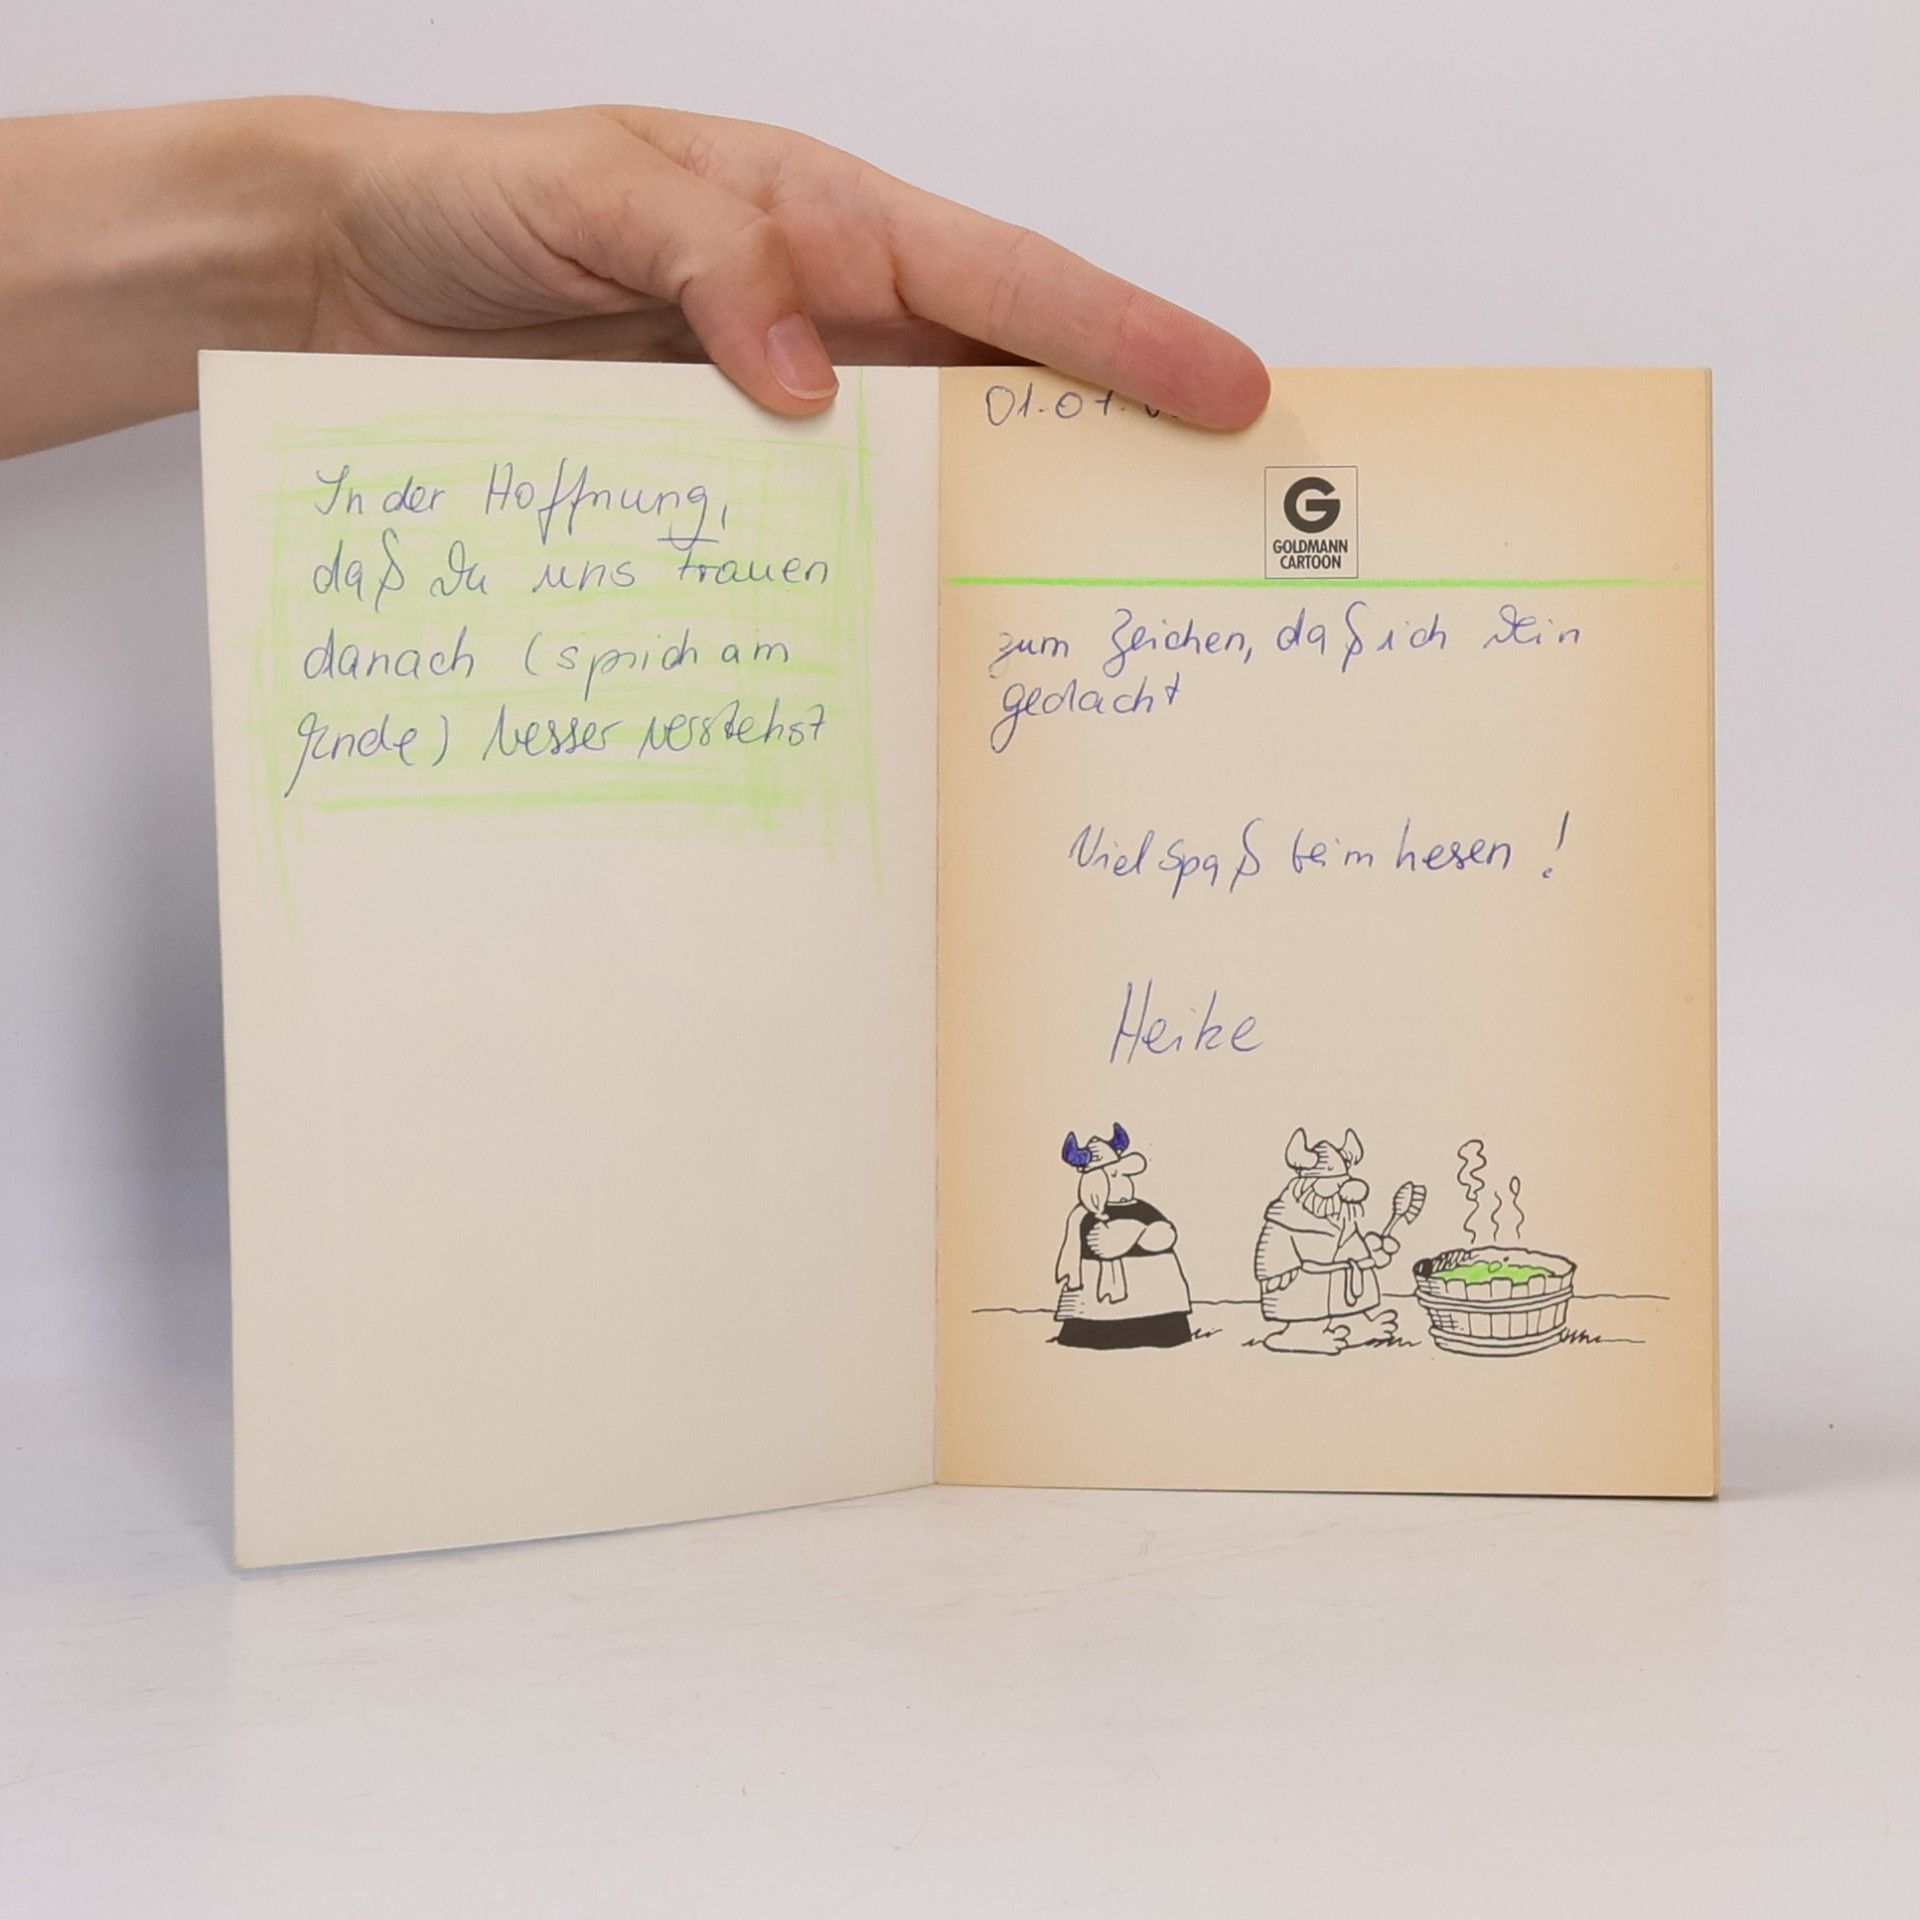 In der Hoffnung,
daß Du uns Frauen
danach (sprich am
Ende) besser verstehst
01.07.
G
GOLDMANN
CARTOON
zum Zeichen, daß ich Dein
gedacht
Viel Spaß beim Lesen!
Heike